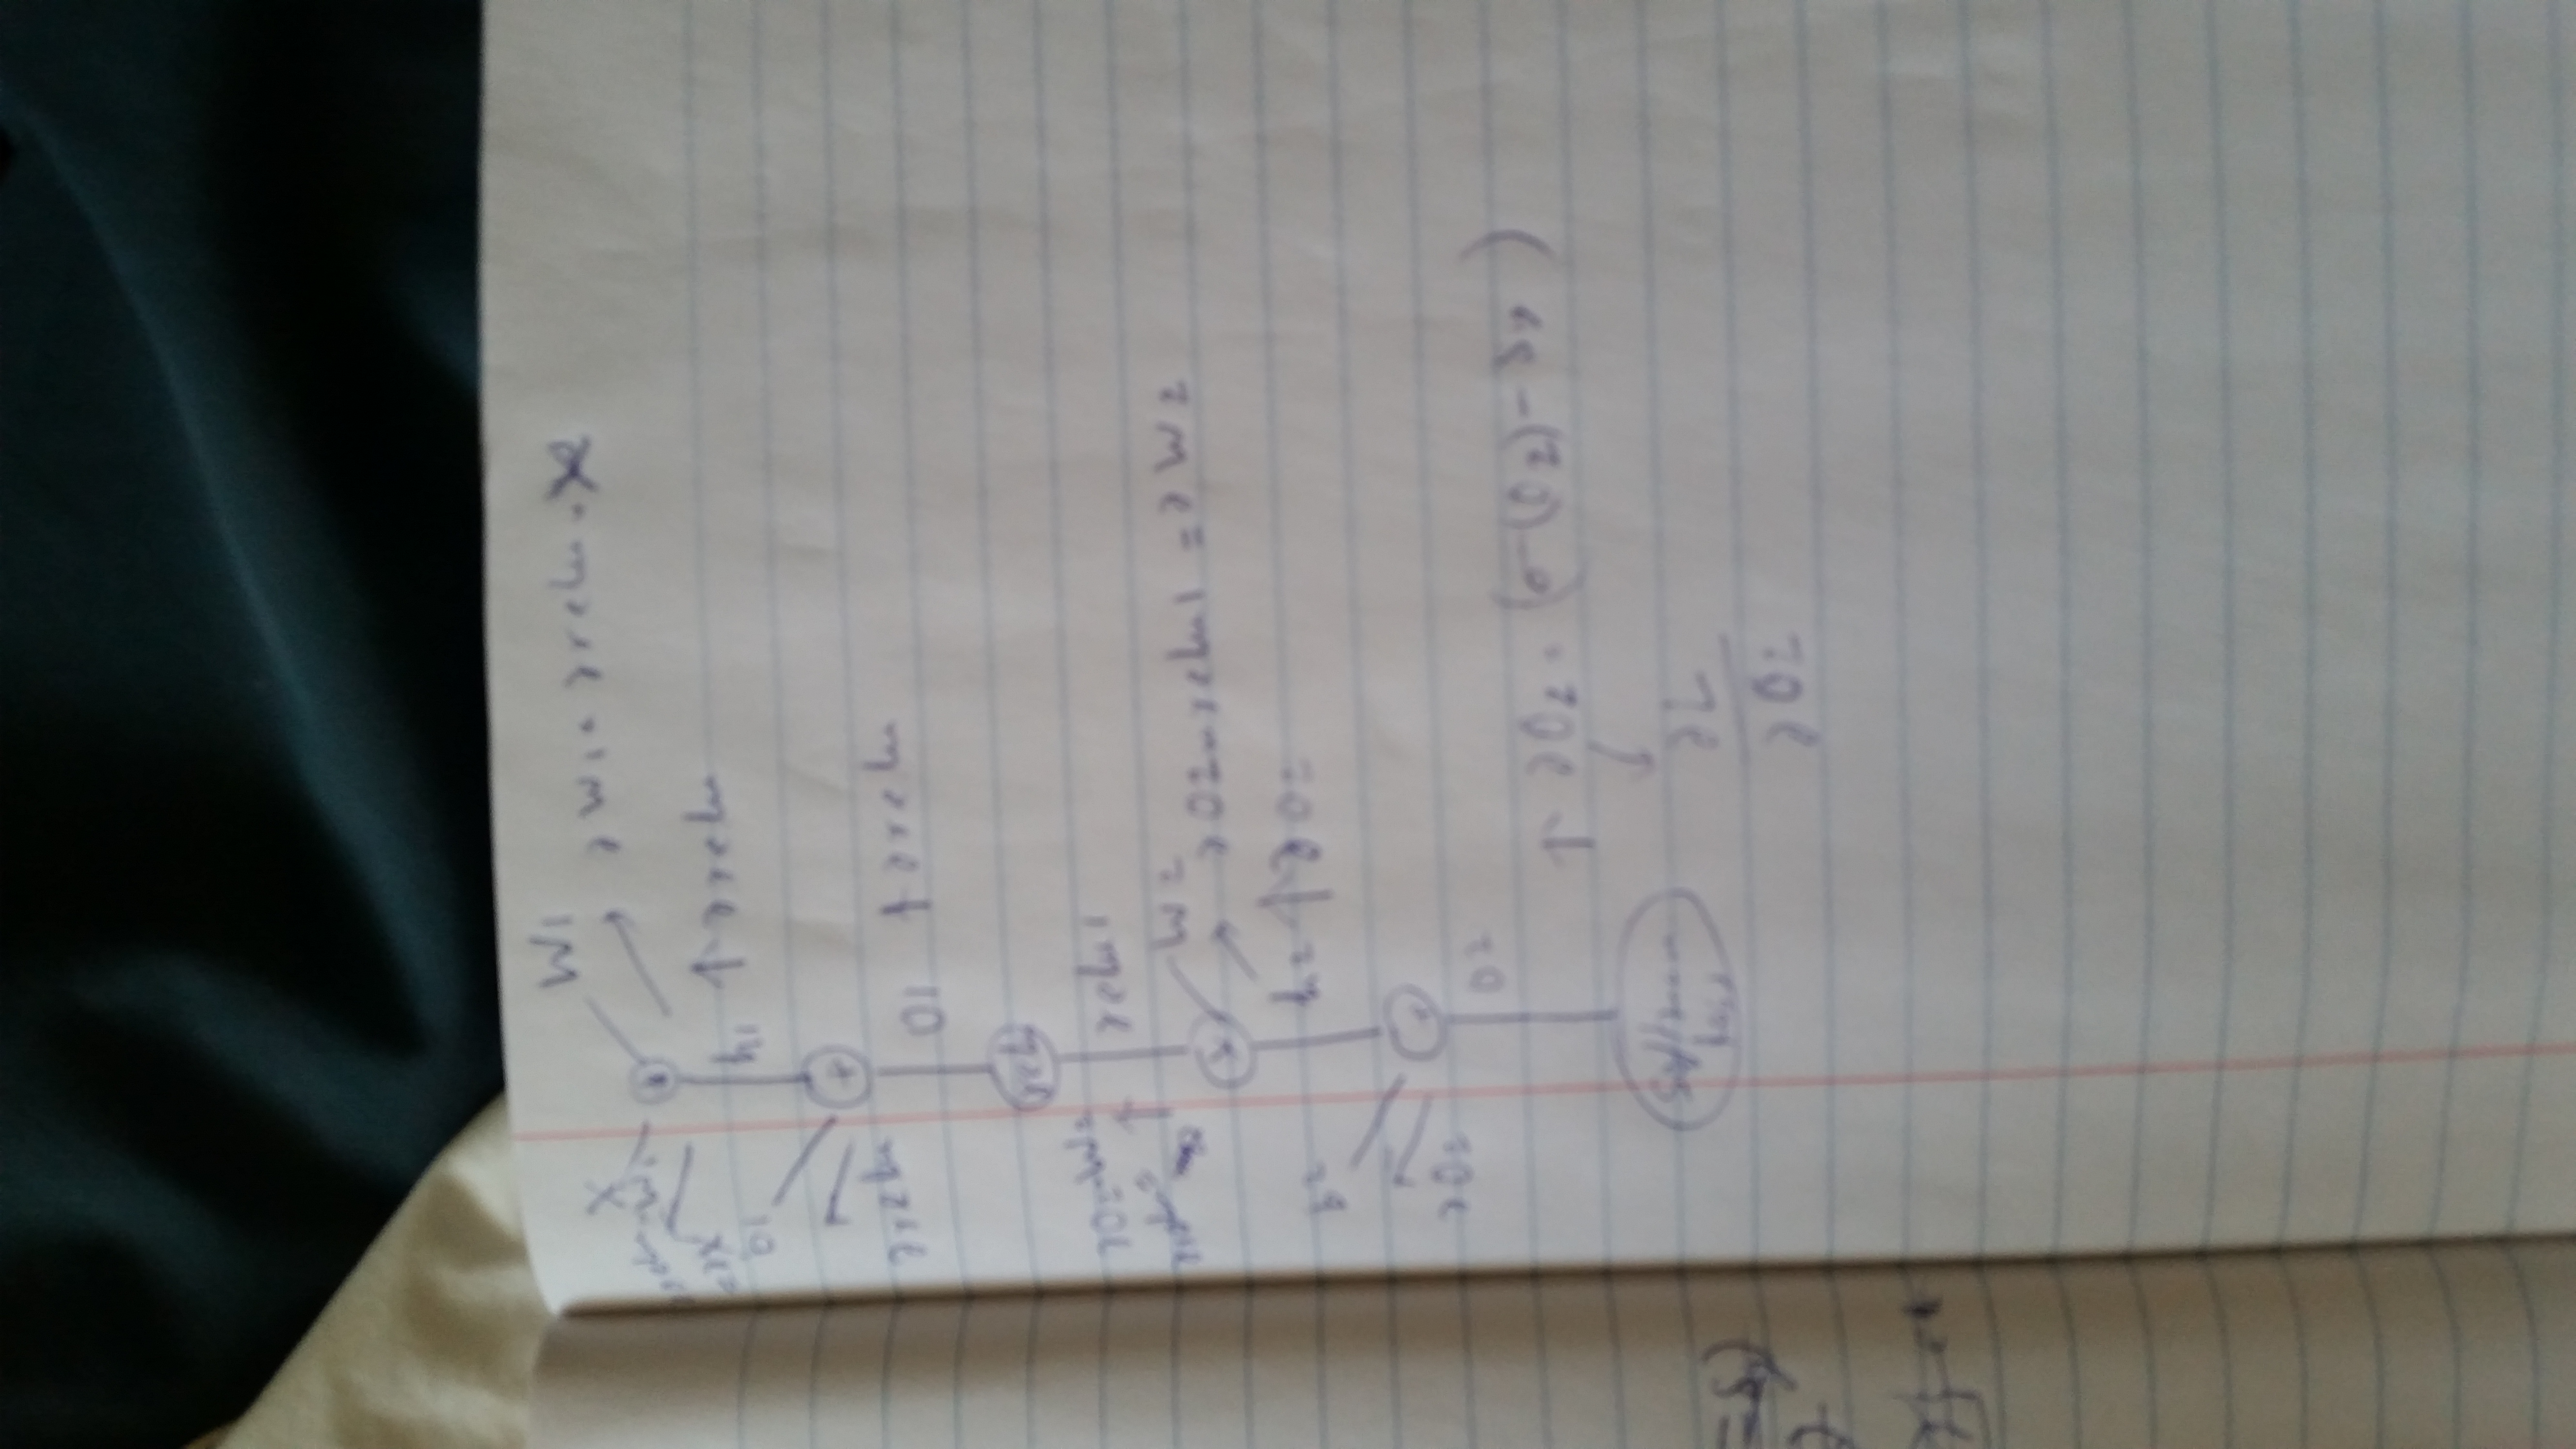 W1
X
∂W1 = ∂relu . X
W1
= ∂X
h1 ↑ ∂relu
b1
+
∂relu
O1 ↑ ∂relu
relu
∂O2 . W2
relu1
W2
∂O2 . relu1 = ∂W2
h2 ↑ ∂O2
b2
∂O2
O2
↑ ∂O2 = (σ(O2) - δy)
Softmax
loss
∂L
∂O2